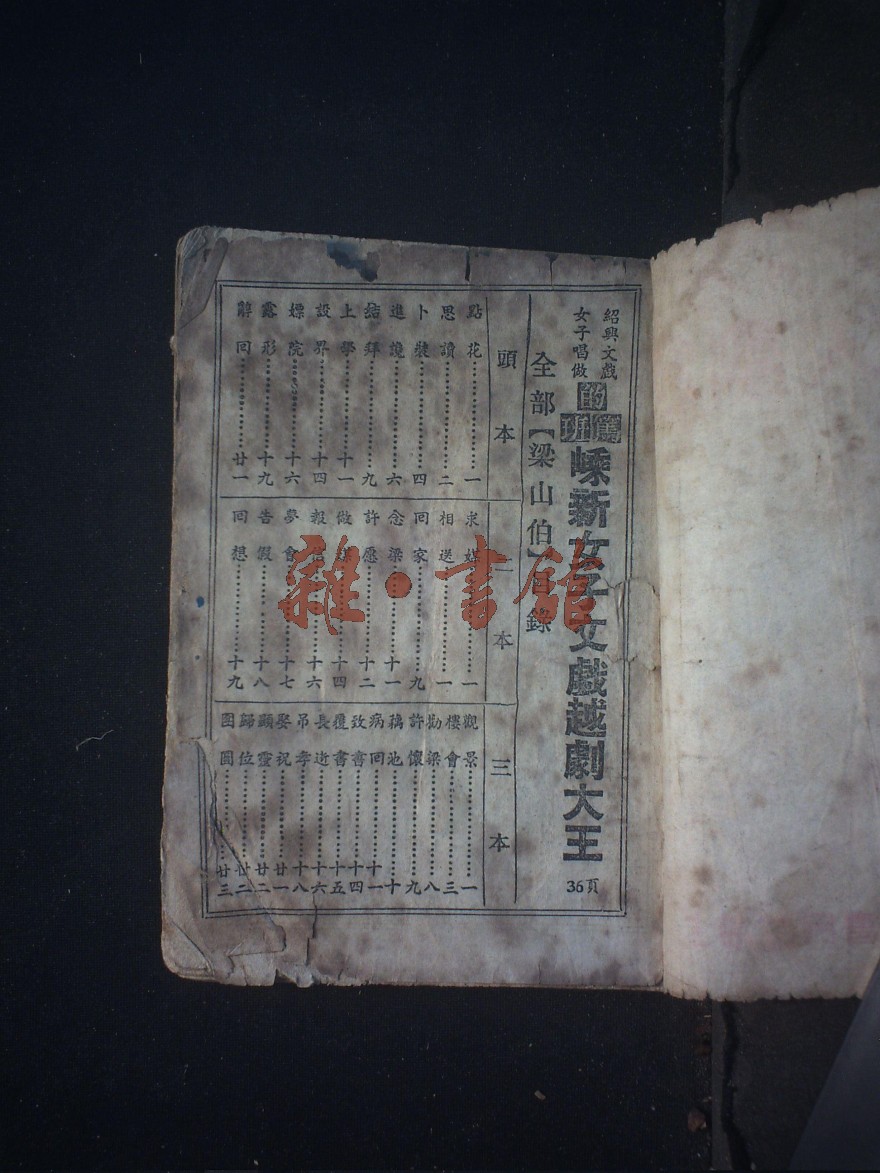 紹興文戲
女子唱做
的篤班
嵊新女子文戲越劇大王
36頁
全部【梁山伯】目錄
頭本
點花……一
思讀……二
卜裝……四
進讒……六
結拜……九
上學……十一
設界……十四
嫖院……十六
露形……十九
辭回……廿一
二本
求媒……一
相送……一
回家……九
念梁……十一
許愿……十二
做媒……十四
報信……十六
夢會……十七
告假……十八
回想……十九
三本
觀景……一
樓會……三
勸梁……八
許懷……九
藕池……十
病回……十一
致書……十四
覆書……十五
長逝……十六
吊孝……十八
娶祝……廿一
顯靈……廿二
歸位……廿二
團圓……廿三
雜·書館